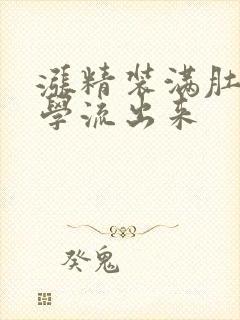 漲精装满肚
學流出来
癸鬼